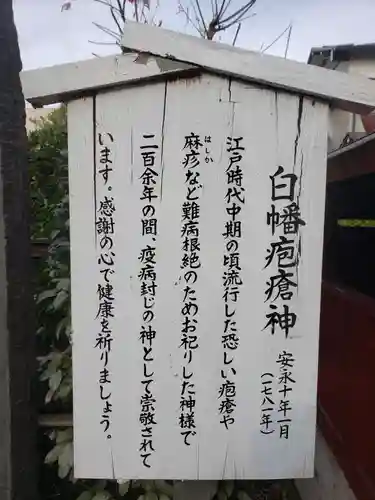 白幡疱瘡神
安永十年一月
(一七八一年)
江戸時代中期の頃流行した恐しい疱瘡や
麻疹など難病根絶のためお祀りした神様で
はしか
二百余年の間、疫病封じの神として崇敬されて
います。感謝の心で健康を祈りましょう。